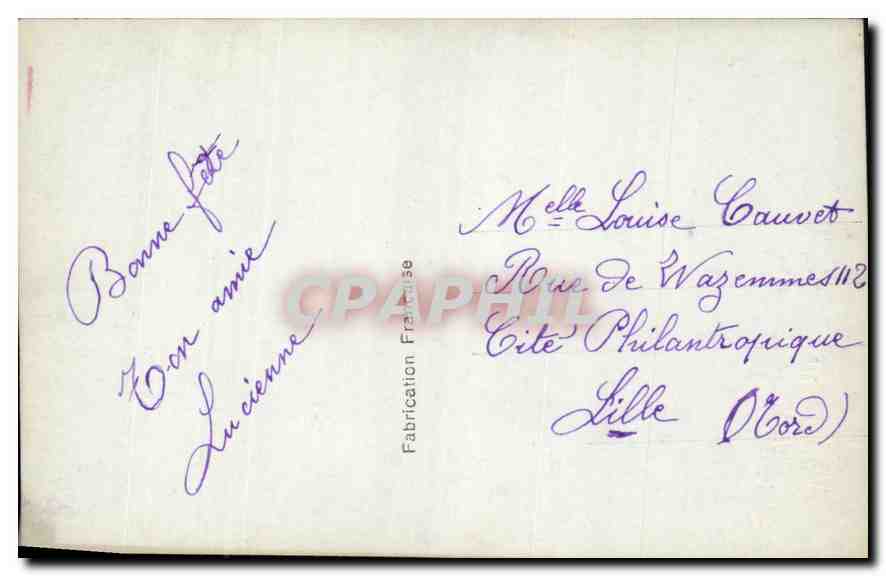 Bonne fête
Ton amie
Lucienne
Fabrication Française
CPAPHIL
Melle Louise Cauvet
Rue de Wazemmes 112
Cité Philantropique
Lille (Nord)